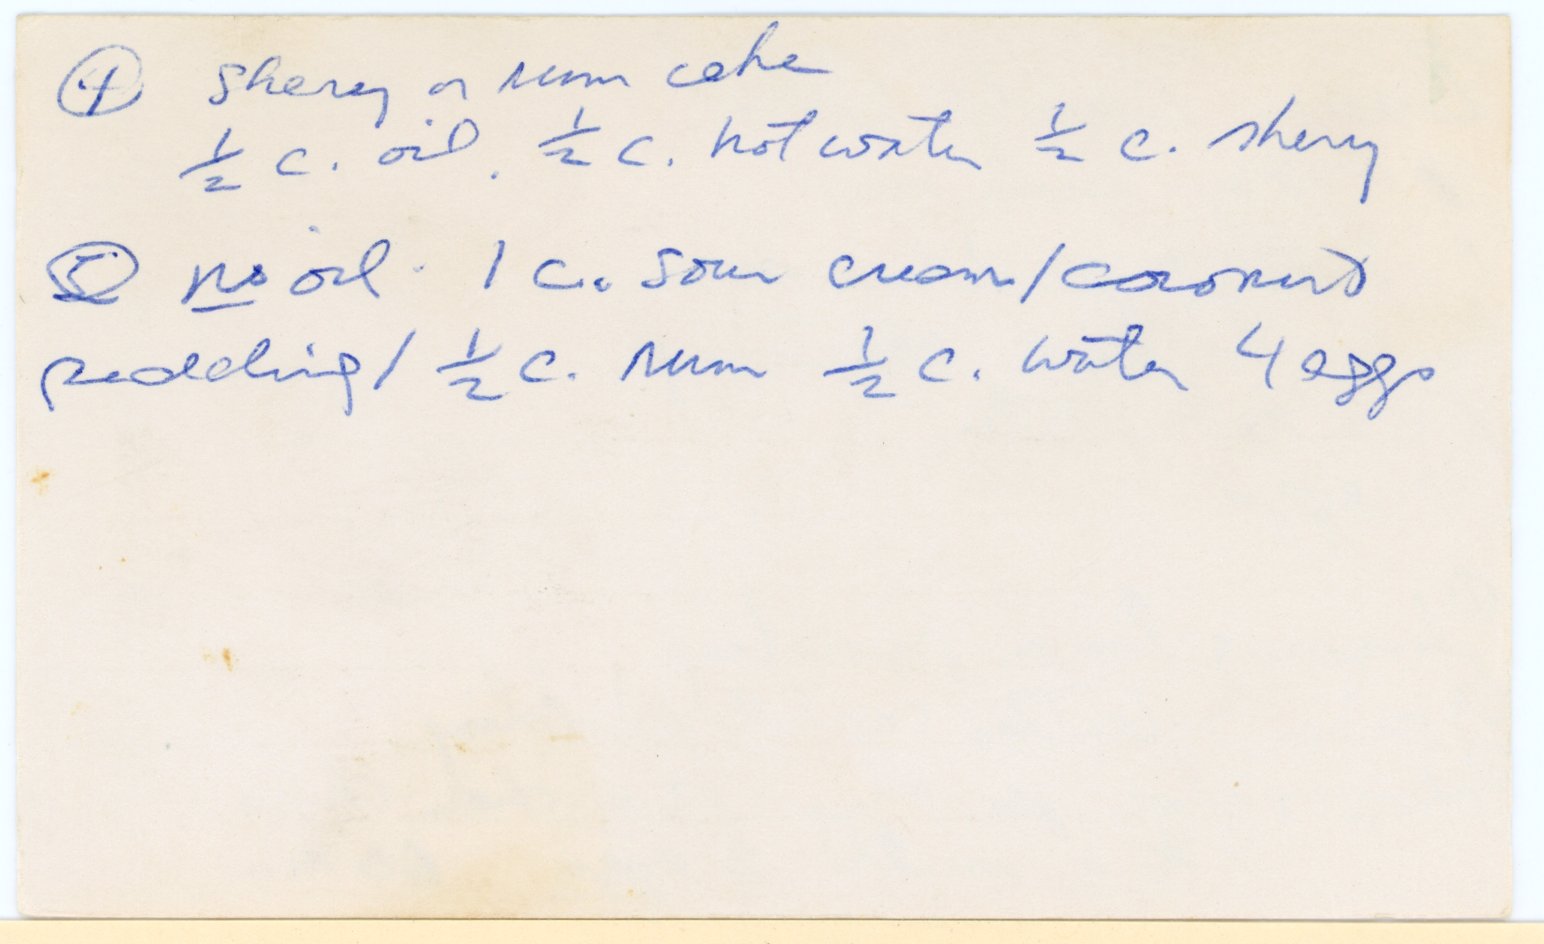 ④ Shery or rum cake
½ c. oil. ½ c. hot water ½ c. shery
⑤ no oil. 1 c. sour cream/coconut
pudding/ ½ c. rum ½ c. water 4 eggs